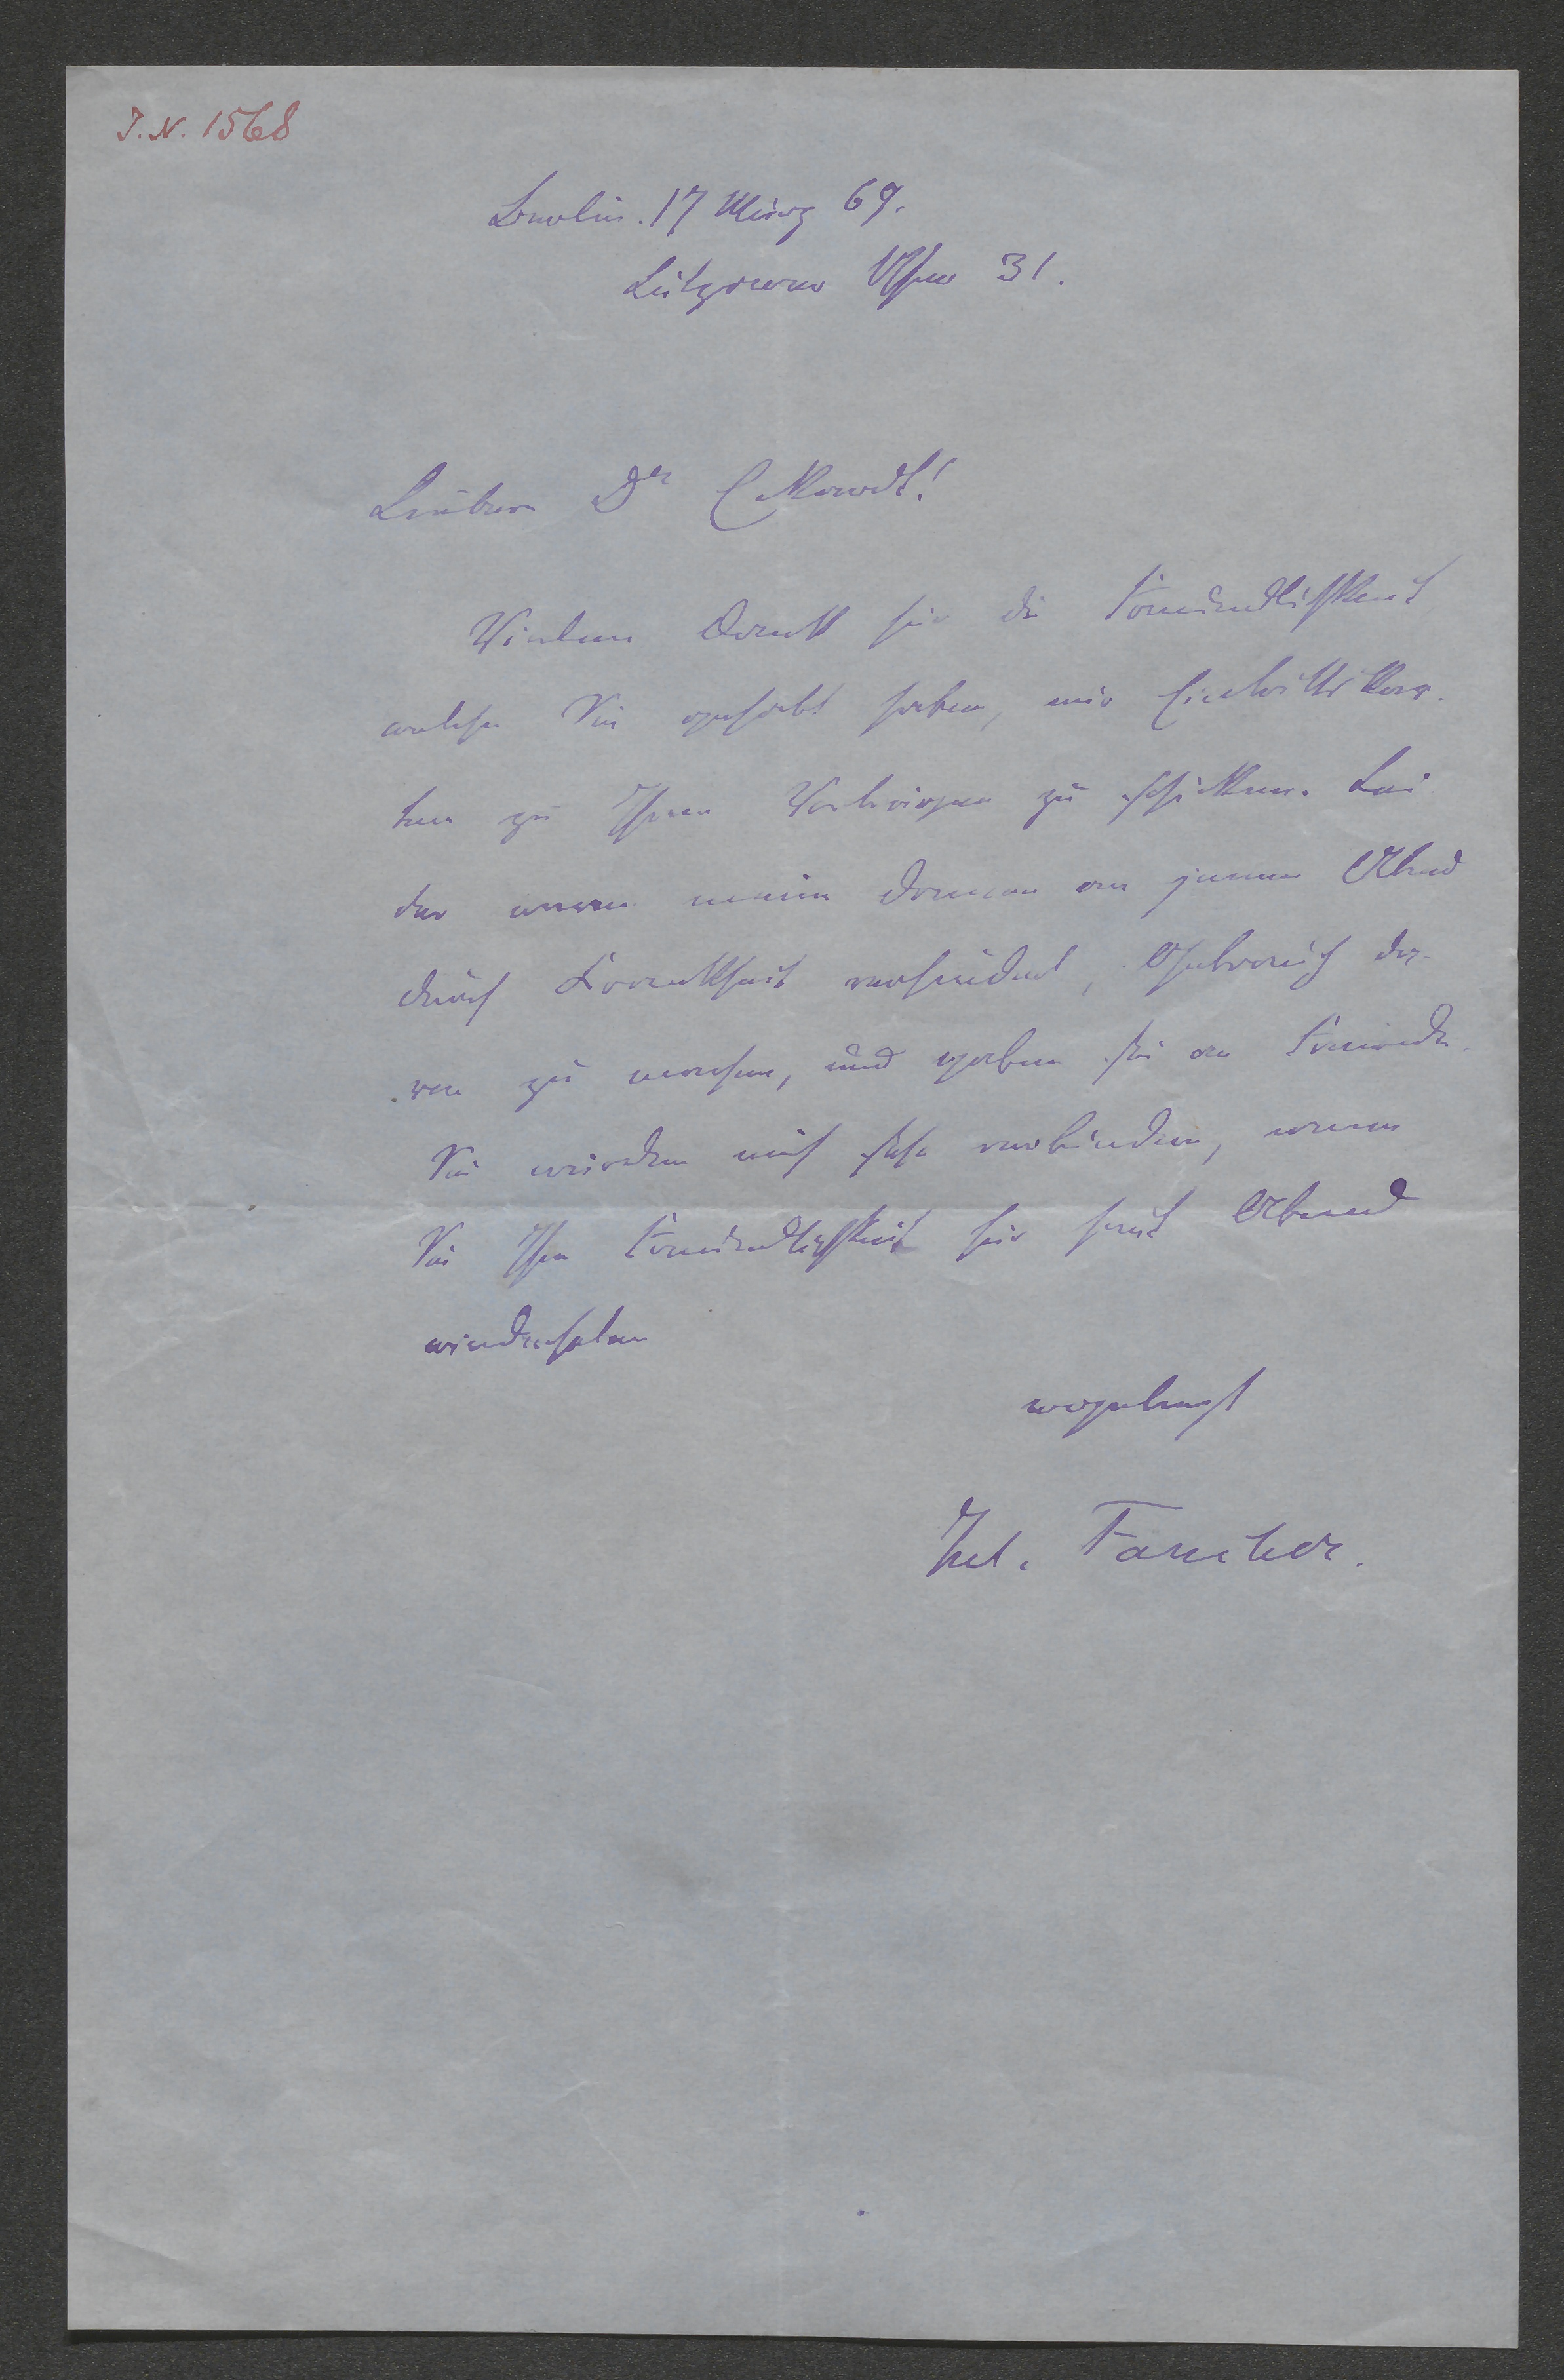 J. N. 1568
Berlin. 17 März 69.
Lützower Ufer 31.
Lieber Dr Eckardt!
Vielen Dank für die Freundlichkeit
welche Sie gehabt haben, mir Eintrittskar-
ten zu Ihren Vorträgen zu schicken. Lei
der waren meine Damen an jenem Abend
durch Krankheit verhindert, Gebrauch da-
von zu machen, und gaben sie an Freunde.
Sie würden mich sehr verbinden, wenn
Sie Ihre Freundlichkeit für heut Abend
wiederholen
ergebenst
Jul. Faucher.